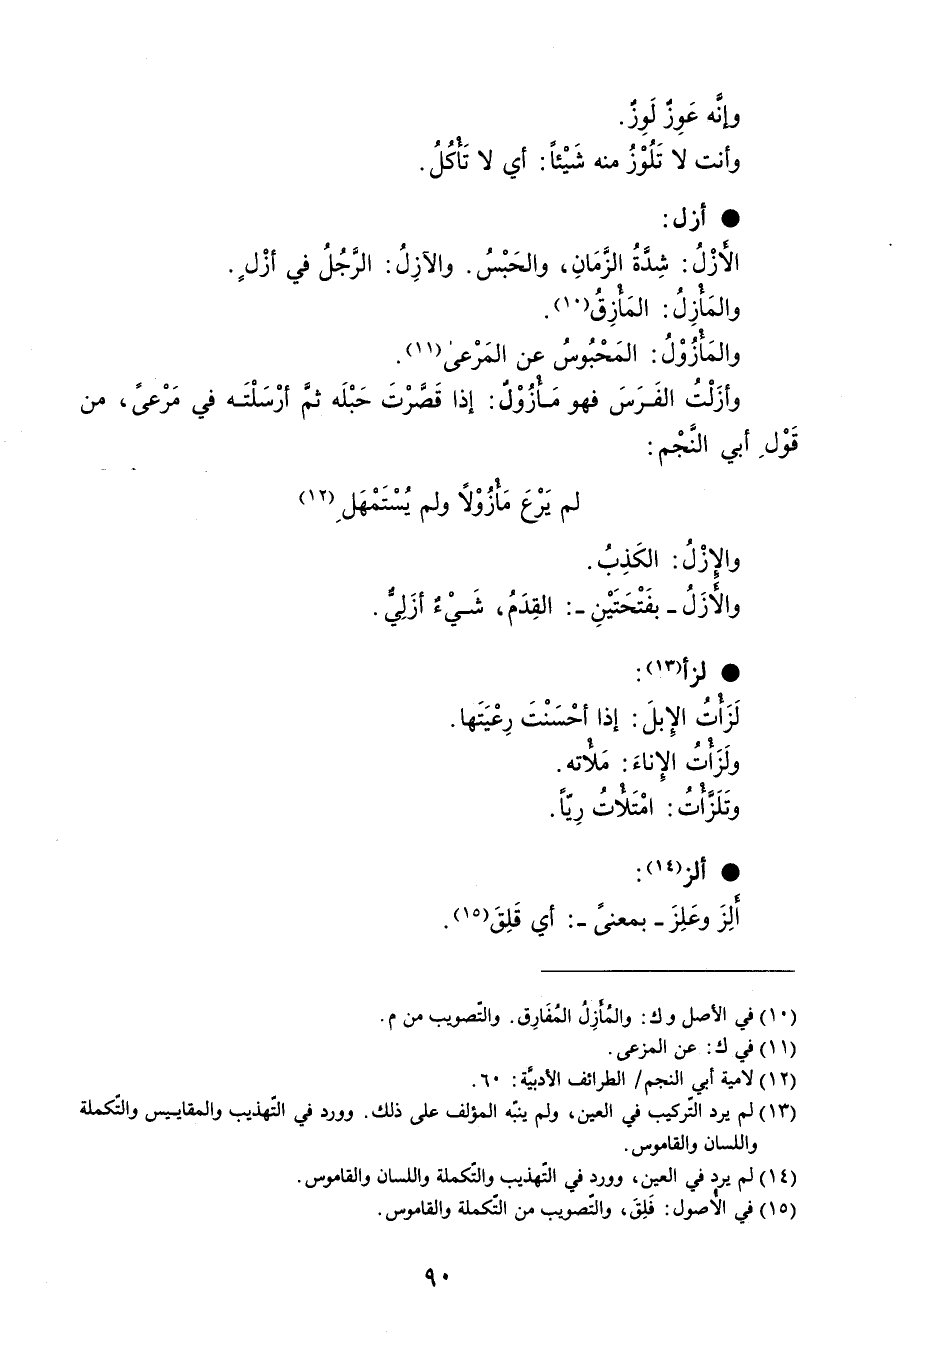 وإنَّه عَوِزٌ لَوِزٌ.
وأنت لا تَلُوْزُ منه شَيْئاً: أي لا تَأْكُلُ.
● أزل:
الأَزْلُ: شِدَّةُ الزَّمَانِ، والحَبْسُ. والآزِلُ: الرَّجُلُ في أزْلٍ.
والمَأْزِلُ: المَأْزِقُ(١٠).
والمَأْزُوْلُ: المَحْبُوسُ عن المَرْعىٰ(١١).
وأزَلْتُ الفَرَسَ فهو مَأْزُوْلٌ: إذا قَصَّرْتَ حَبْلَه ثمَّ أرْسَلْتَه في مَرْعىً، من
قَوْلِ أبي النَّجْم:
لم يَرْعَ مَأْزُوْلاً ولم يُسْتَمْهَلِ(١٢)
والإِزْلُ: الكَذِبُ.
والأَزَلُ ـ بفَتْحَتَيْنِ ـ: القِدَمُ، شَيْءٌ أزَلِيٌّ.
● لزأ(١٣):
لَزَأْتُ الإِبلَ: إذا أحْسَنْتَ رِعْيَتَها.
ولَزَأْتُ الإِناءَ: مَلأْته.
وتَلَزَّأْتُ: امْتَلأْتُ رِيّاً.
● ألز(١٤):
أَلِزَ وعَلِزَ ـ بمعنىً ـ: أي قَلِقَ(١٥).
(١٠) في الأصل و ك: والمُأَزِلُ المُفَارِق. والتّصويب من م.
(١١) في ك: عن المزعى.
(١٢) لامية أبي النجم/ الطرائف الأدبيَّة: ٦٠.
(١٣) لم يرد التّركيب في العين، ولم ينبّه المؤلف على ذلك. وورد في التّهذيب والمقاييس والتّكملة
واللسان والقاموس.
(١٤) لم يرد في العين، وورد في التّهذيب والتّكملة واللسان والقاموس.
(١٥) في الأصول: فَلِقَ، والتّصويب من التّكملة والقاموس.
٩٠